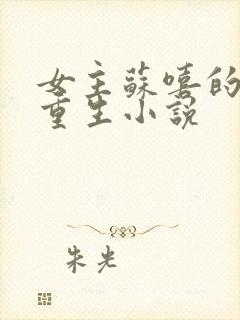 女主蘇嘻的
重生小說
朱光